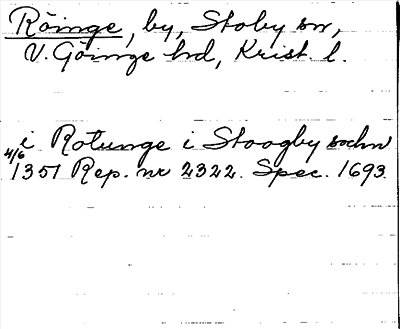 Röinge, by, Stoby sn,
V. Göinge hd, Krist. l.
i Røtunge i Stoogby sochn
4/6 1351 Rep. nr 2322. Spec. 1693.